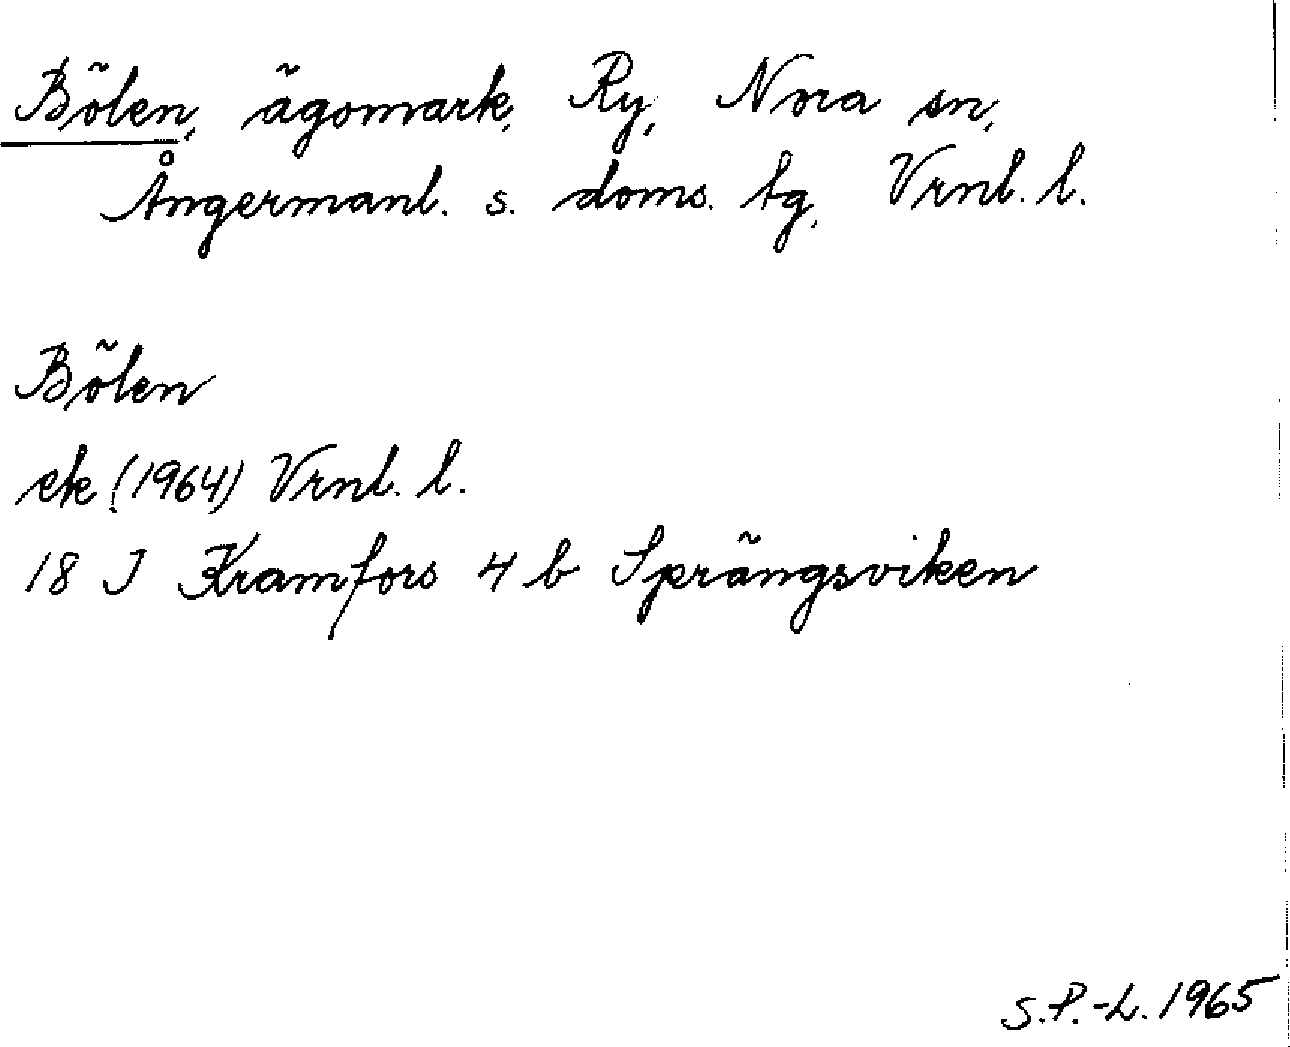 Bölen, ägomark, Ry, Nora sn,
Ångermanl. s. doms. tg, Vrnl. l.
Bölen
ek (1964) Vrnl. l.
18 I Kramfors 4 b Sprängsviken
S.P.-L. 1965